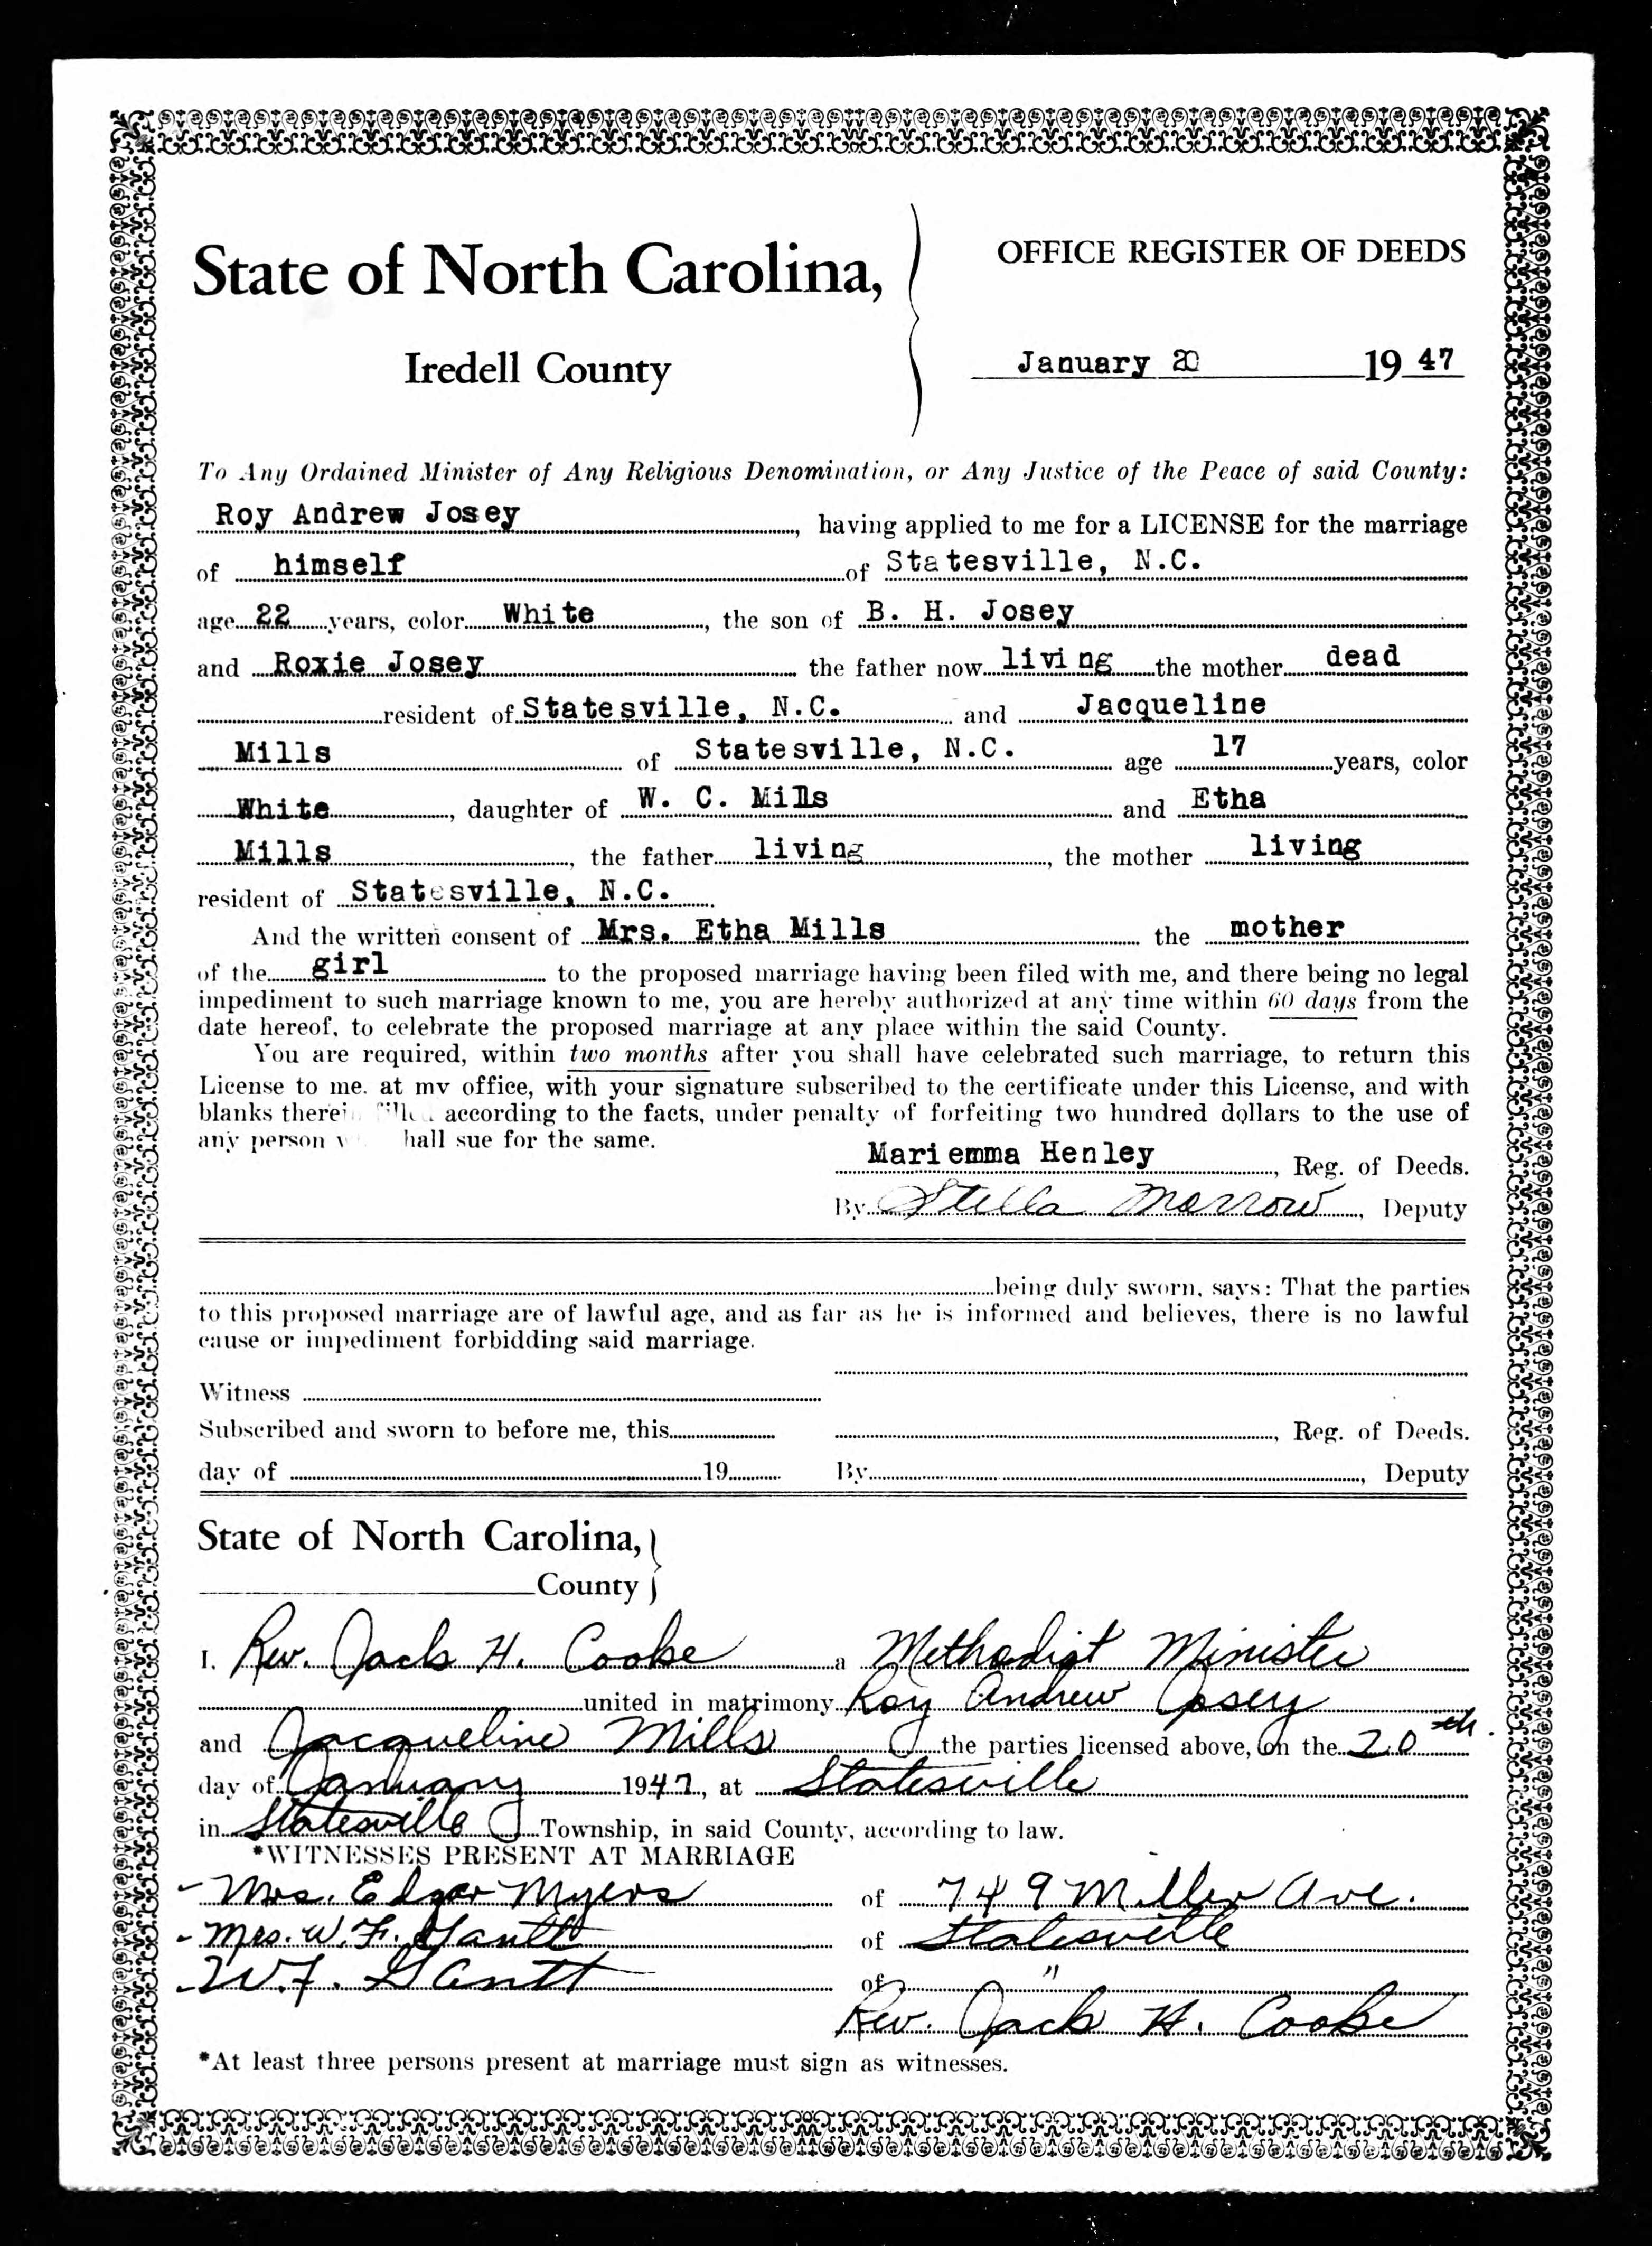 State of North Carolina,
Iredell County
OFFICE REGISTER OF DEEDS
January 20 1947
To Any Ordained Minister of Any Religious Denomination, or Any Justice of the Peace of said County:
Roy Andrew Josey, having applied to me for a LICENSE for the marriage
of himself of Statesville, N.C.
age 22 years, color White, the son of B. H. Josey
and Roxie Josey the father now living the mother dead
resident of Statesville, N.C. and Jacqueline
Mills of Statesville, N.C. age 17 years, color
White, daughter of W. C. Mills and Etha
Mills, the father living, the mother living
resident of Statesville, N.C.
And the written consent of Mrs. Etha Mills the mother
of the girl to the proposed marriage having been filed with me, and there being no legal
impediment to such marriage known to me, you are hereby authorized at any time within 60 days from the
date hereof, to celebrate the proposed marriage at any place within the said County.
You are required, within two months after you shall have celebrated such marriage, to return this
License to me, at my office, with your signature subscribed to the certificate under this License, and with
blanks therein filled according to the facts, under penalty of forfeiting two hundred dollars to the use of
any person hall sue for the same.
Mariemma Henley, Reg. of Deeds.
By Stella Morrow, Deputy
being duly sworn, says: That the parties
to this proposed marriage are of lawful age, and as far as he is informed and believes, there is no lawful
cause or impediment forbidding said marriage.
Witness
Subscribed and sworn to before me, this , Reg. of Deeds.
day of 19 By , Deputy
State of North Carolina,
County
I, Rev. Jack H. Cooke a Methodist Minister
united in matrimony Roy Andrew Josey
and Jacqueline Mills the parties licensed above, on the 20th.
day of January 1947, at Statesville
in Statesville Township, in said County, according to law.
*WITNESSES PRESENT AT MARRIAGE
- Mrs. Edgar Myers of 749 Miller Ave.
- Mrs. W. F. Gantt of Statesville
W. F. Gantt of "
Rev. Jack H. Cooke
*At least three persons present at marriage must sign as witnesses.